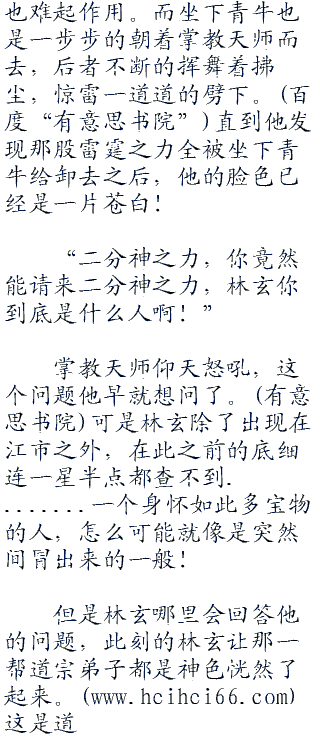 也难起作用。而坐下青牛也
是一步步的朝着掌教天师而
去，后者不断的挥舞着拂
尘，惊雷一道道的劈下。(百
度“有意思书院”)直到他发
现那股雷霆之力全被坐下青
牛给卸去之后，他的脸色已
经是一片苍白！
“二分神之力，你竟然
能请来二分神之力，林玄你
到底是什么人啊！”
掌教天师仰天怒吼，这
个问题他早就想问了。(有意
思书院)可是林玄除了出现在
江市之外，在此之前的底细
连一星半点都查不到.
.......一个身怀如此多宝物
的人，怎么可能就像是突然
间冒出来的一般！
但是林玄哪里会回答他
的问题，此刻的林玄让那一
帮道宗弟子都是神色恍然了
起来。(www.hcihci66.com)
这是道